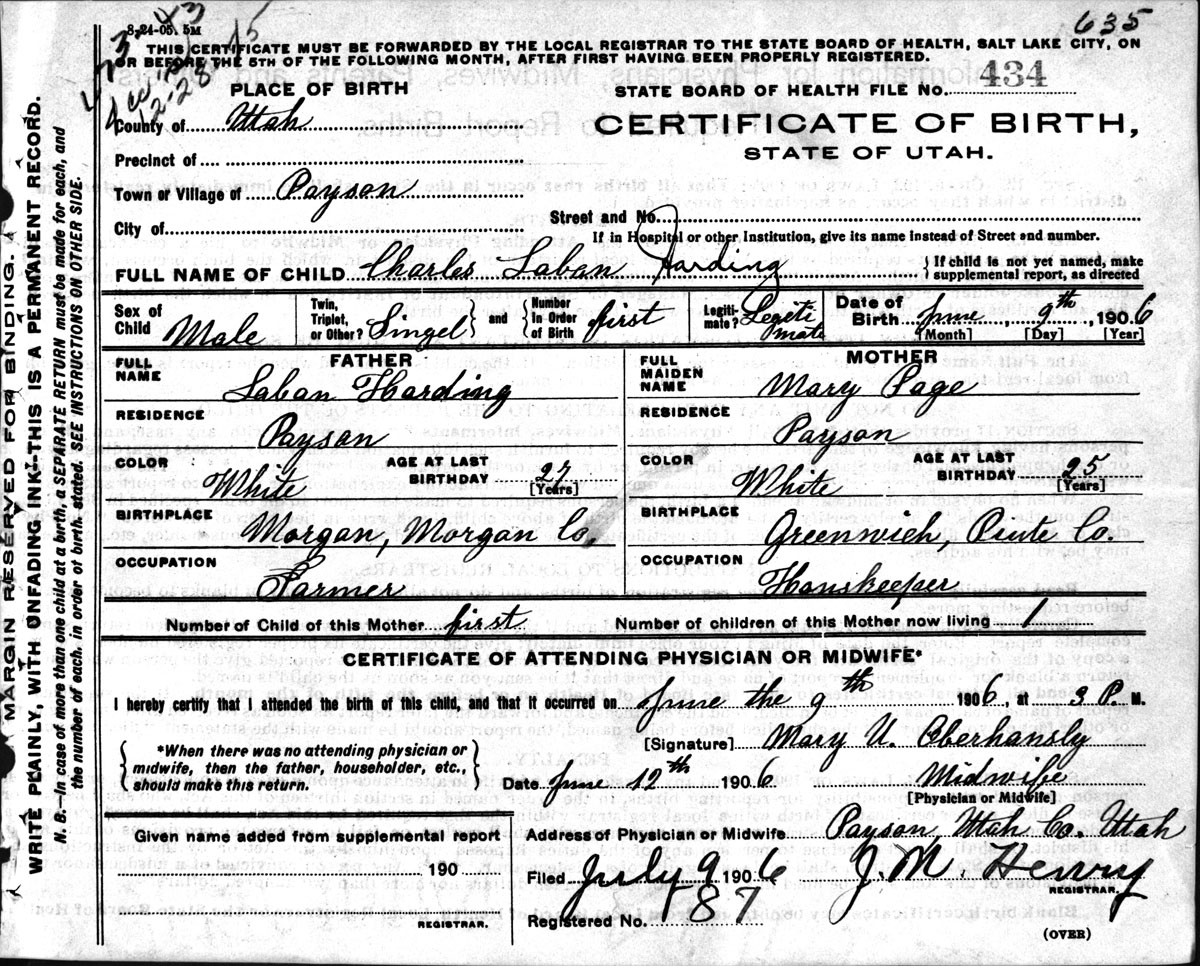 635
8-24-05. 5M
THIS CERTIFICATE MUST BE FORWARDED BY THE LOCAL REGISTRAR TO THE STATE BOARD OF HEALTH, SALT LAKE CITY, ON
OR BEFORE THE 5TH OF THE FOLLOWING MONTH, AFTER FIRST HAVING BEEN PROPERLY REGISTERED.
12-28
PLACE OF BIRTH
STATE BOARD OF HEALTH FILE No. 434
County of Utah
CERTIFICATE OF BIRTH,
STATE OF UTAH.
Precinct of
Town or Village of Payson
Street and No.
City of
If in Hospital or other Institution, give its name instead of Street and number.
FULL NAME OF CHILD Charles Laban Harding { If child is not yet named, make supplemental report, as directed
Sex of Child Male
Twin, Triplet, or Other? Singel and Number In Order of Birth first
Legiti-mate? Legiti mate
Date of Birth June, 9th, 1906
[Month] [Day] [Year]
FATHER
FULL NAME Laban Harding
RESIDENCE Payson
COLOR White AGE AT LAST BIRTHDAY 27 [Years]
BIRTHPLACE Morgan, Morgan Co.
OCCUPATION Farmer
MOTHER
FULL MAIDEN NAME Mary Page
RESIDENCE Payson
COLOR White AGE AT LAST BIRTHDAY 25 [Years]
BIRTHPLACE Greenwich Piute Co.
OCCUPATION Houskeeper
Number of Child of this Mother first Number of children of this Mother now living 1
CERTIFICATE OF ATTENDING PHYSICIAN OR MIDWIFE*
I hereby certify that I attended the birth of this child, and that it occurred on June the 9th 1906, at 3 P. M.
{ *When there was no attending physician or midwife, then the father, householder, etc., should make this return. }
[Signature] Mary U. Oberhansly
Date June 12th 1906 Midwife
[Physician or Midwife]
Given name added from supplemental report
190
REGISTRAR.
Address of Physician or Midwife Payson Utah Co. Utah
Filed July 9 1906 J. M. Henry
REGISTRAR.
Registered No. 87
(OVER)
MARGIN RESERVED FOR BINDING.
WRITE PLAINLY, WITH UNFADING INK—THIS IS A PERMANENT RECORD.
N. B.—In case of more than one child at a birth, a SEPARATE RETURN must be made for each, and
the number of each, in order of birth, stated. SEE INSTRUCTIONS ON OTHER SIDE.